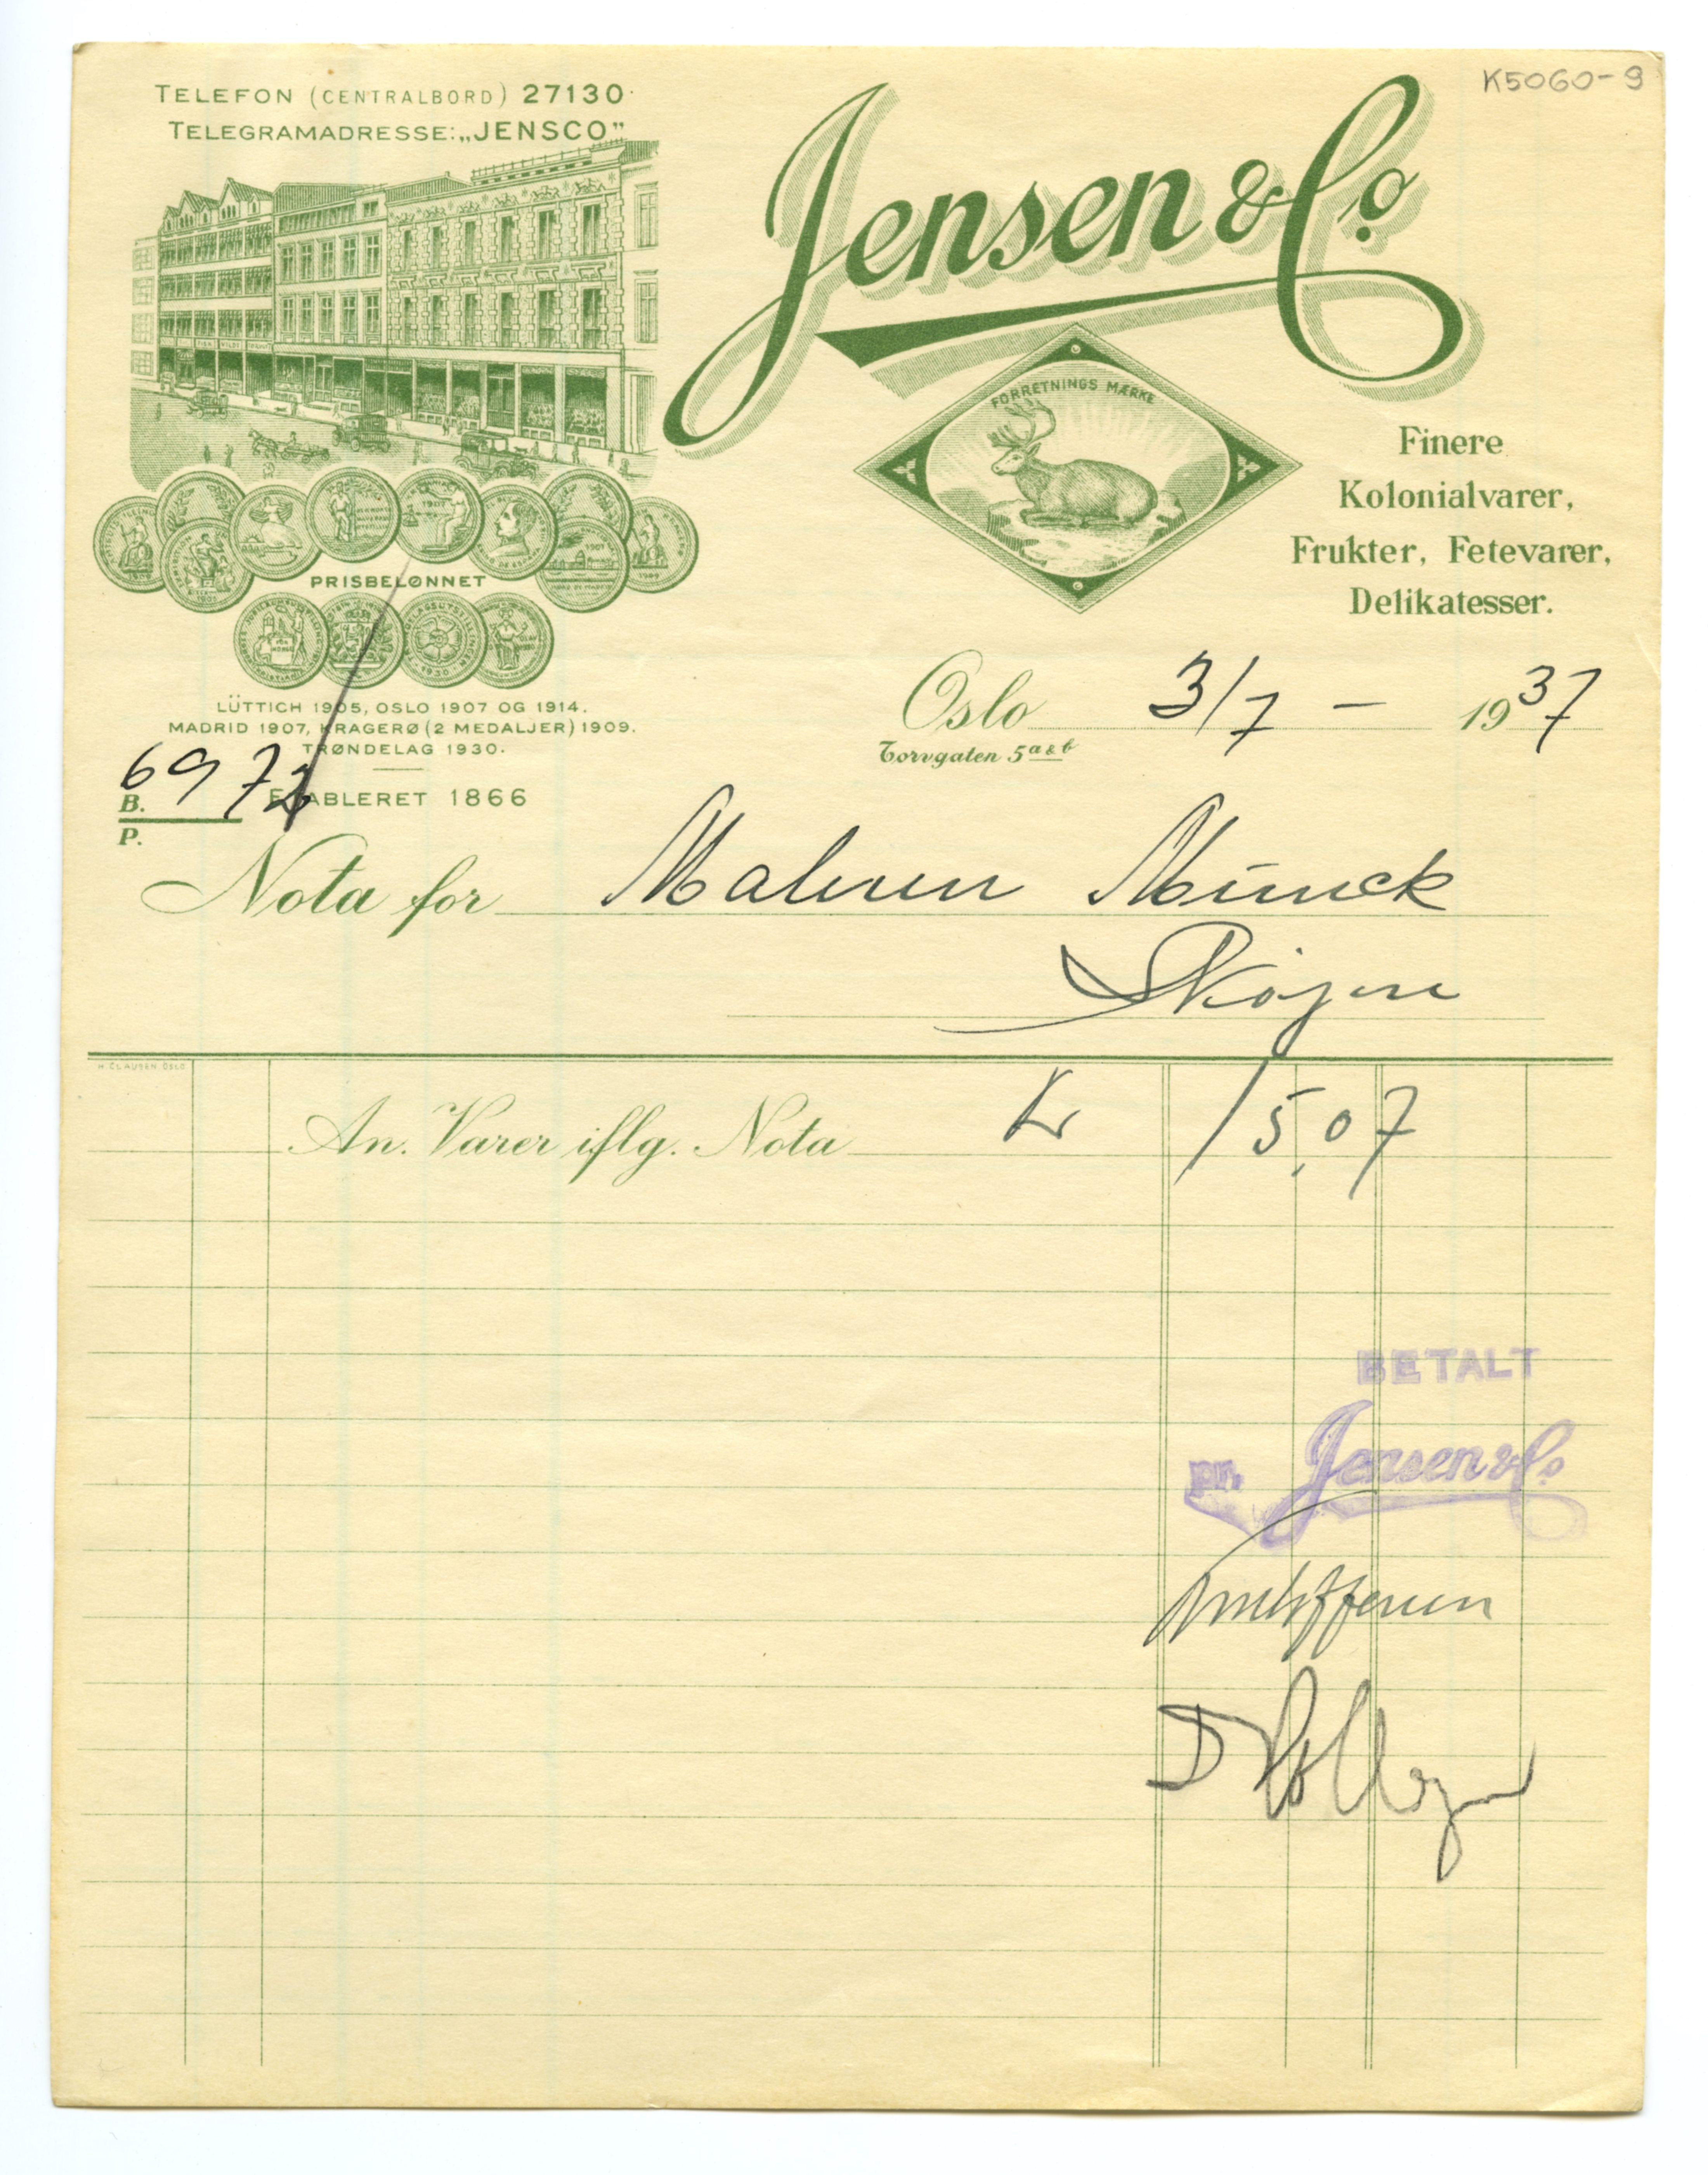 K5060-9
TELEFON (CENTRALBORD) 27130
TELEGRAMADRESSE: „JENSCO”
Jensen & Co
FORRETNINGS MÆRKE
Finere
Kolonialvarer,
Frukter, Fetevarer,
Delikatesser.
PRISBELØNNET
LÜTTICH 1905, OSLO 1907 OG 1914.
MADRID 1907, KRAGERØ (2 MEDALJER) 1909.
TRØNDELAG 1930.
ETABLERET 1866
Oslo 3/7 – 1937
Torvgaten 5 a & b
B. 6972
P.
Nota for Maleren Munck
Skøyen
H. CLAUSEN OSLO
An. Varer iflg. Nota Kr 15,07
BETALT
pr. Jensen & Co